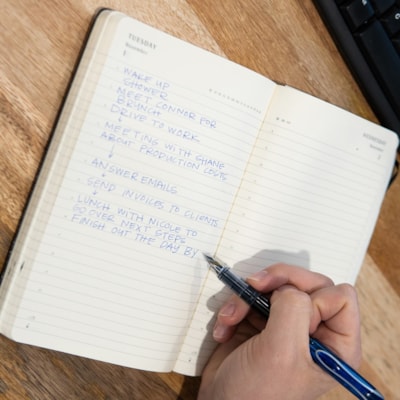 TUESDAY
November
WAKE UP
SHOWER
MEET CONNOR FOR
BRUNCH
DRIVE TO WORK
MEETING WITH SHANE
ABOUT PRODUCTION
ANSWER EMAILS
SEND INVOICES TO CLIENTS
LUNCH WITH NICOLE TO
GO OVER NEXT STEPS
FINISH OUT THE DAY BY
WEDNESDAY